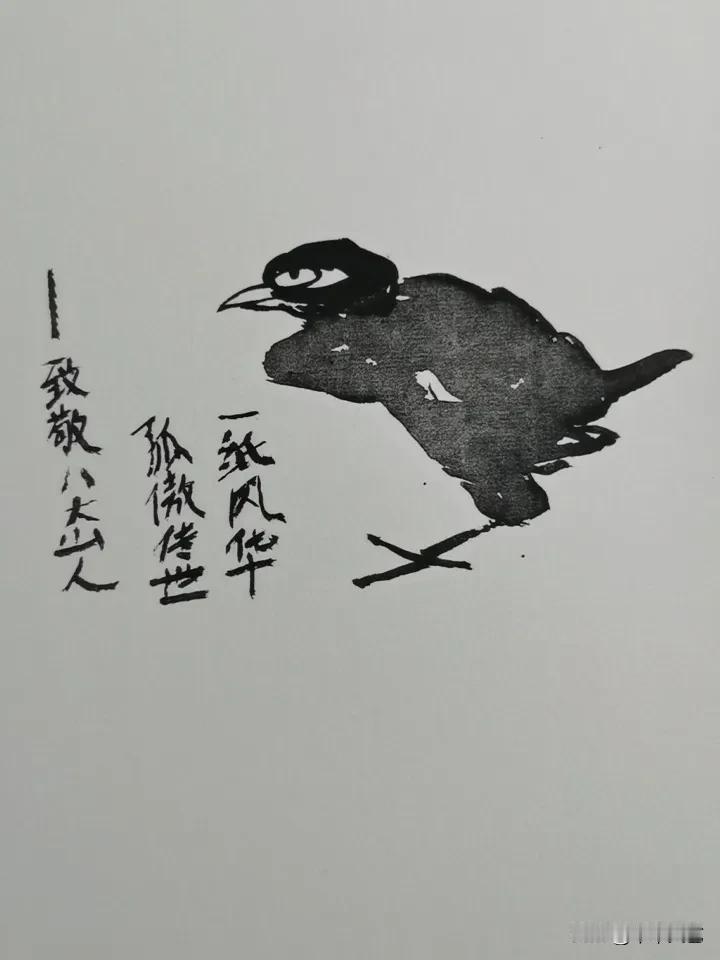 一纸风华
孤傲传世
—致敬八大山人